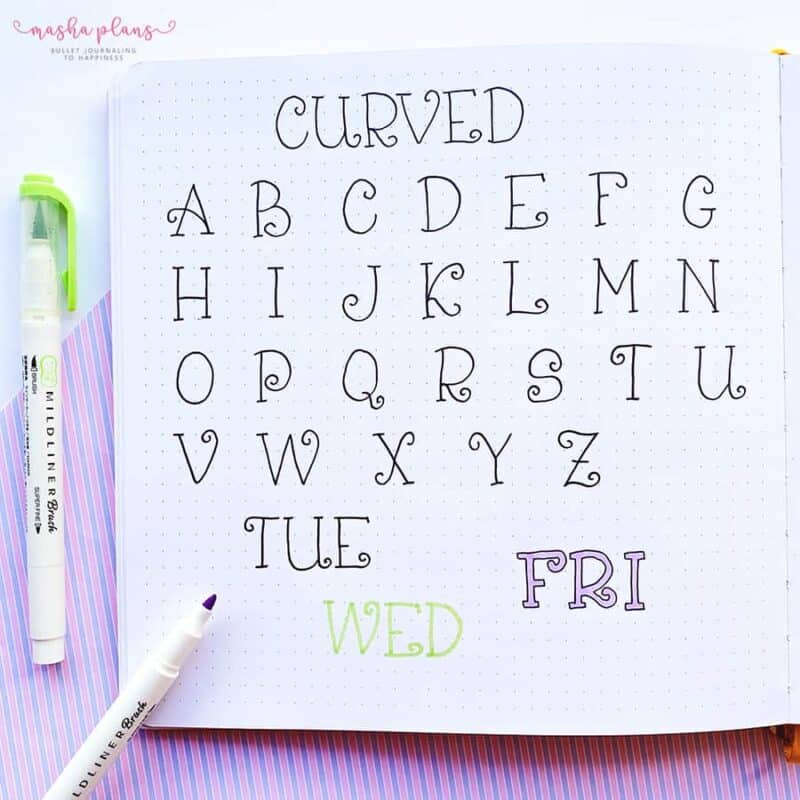 masha plans
BULLET JOURNALING
TO HAPPINESS
CURVED
A B C D E F G
H I J K L M N
O P Q R S T U
V W X Y Z
TUE
FRI
WED
BRUSH
MILDLINER Brush
SUPER FINE
MILDLINER Brush